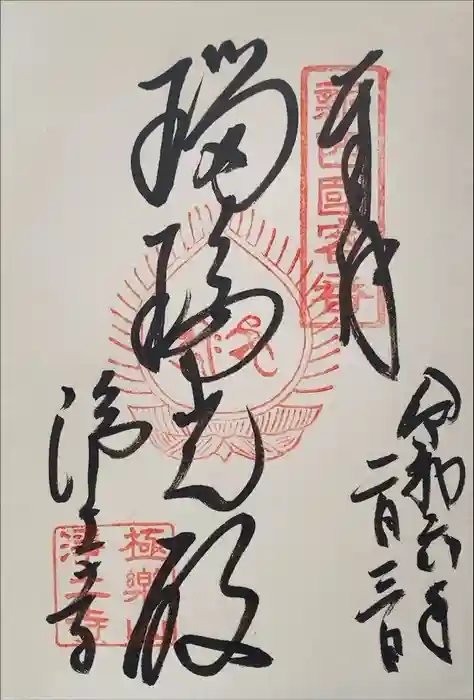 奉拝
新西國客番
令和六年
二月三日
瑠璃光殿
浄土寺
極樂山
淨土寺